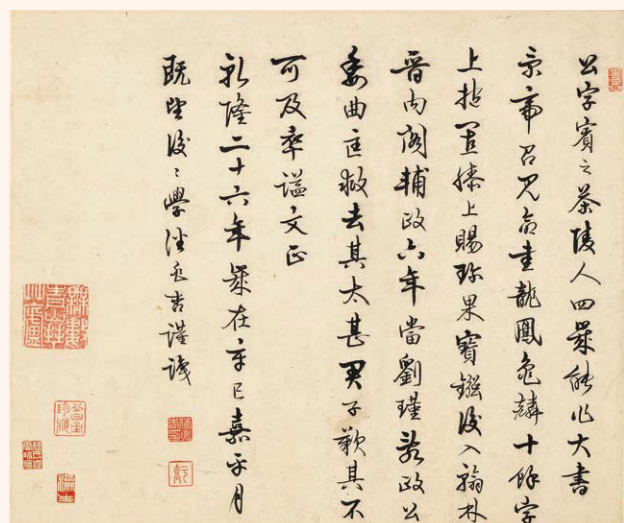 公字賓之茶陵人四歲能作大書
景帝召見命書龍鳳龜麟十餘字
上抱置膝上賜珍果寶鏹後入翰林
晉内閣輔政六年當劉瑾亂政公
委曲匡救去其太甚君子歎其不
可及卒謚文正
乾隆二十六年歲在辛巳嘉平月
既望後〻學謹識